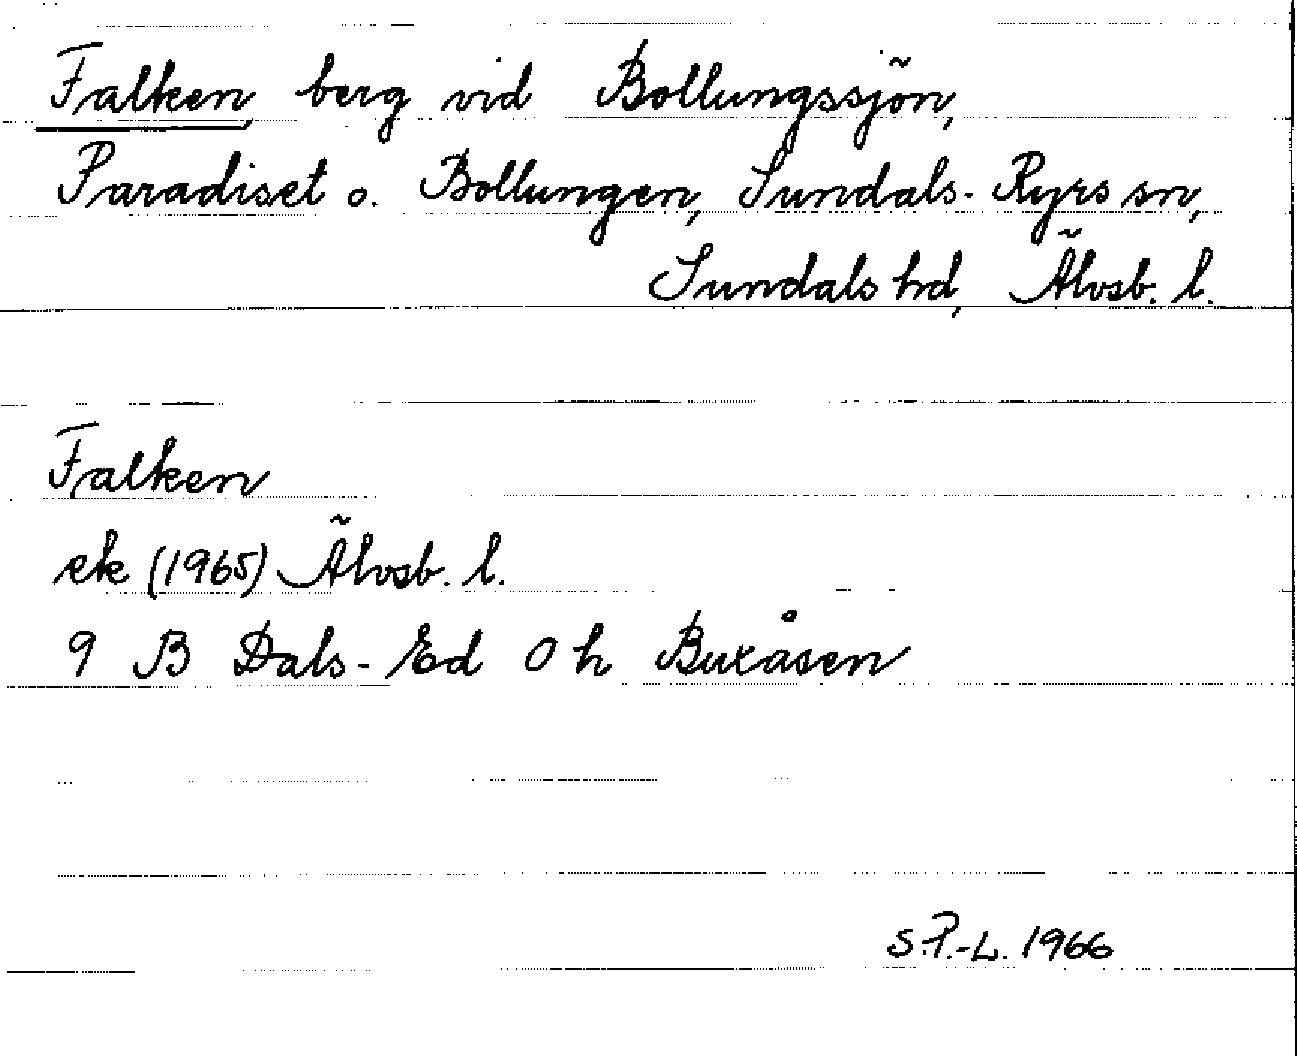 Falken, berg vid Bollungssjön,
Paradiset o. Bollungen, Sundals-Ryrs sn,
Sundals hd, Älvsb. l.
Falken
ek (1965) Älvsb. l.
9 B Dals-Ed 0 h Buxåsen
S.P.-L. 1966